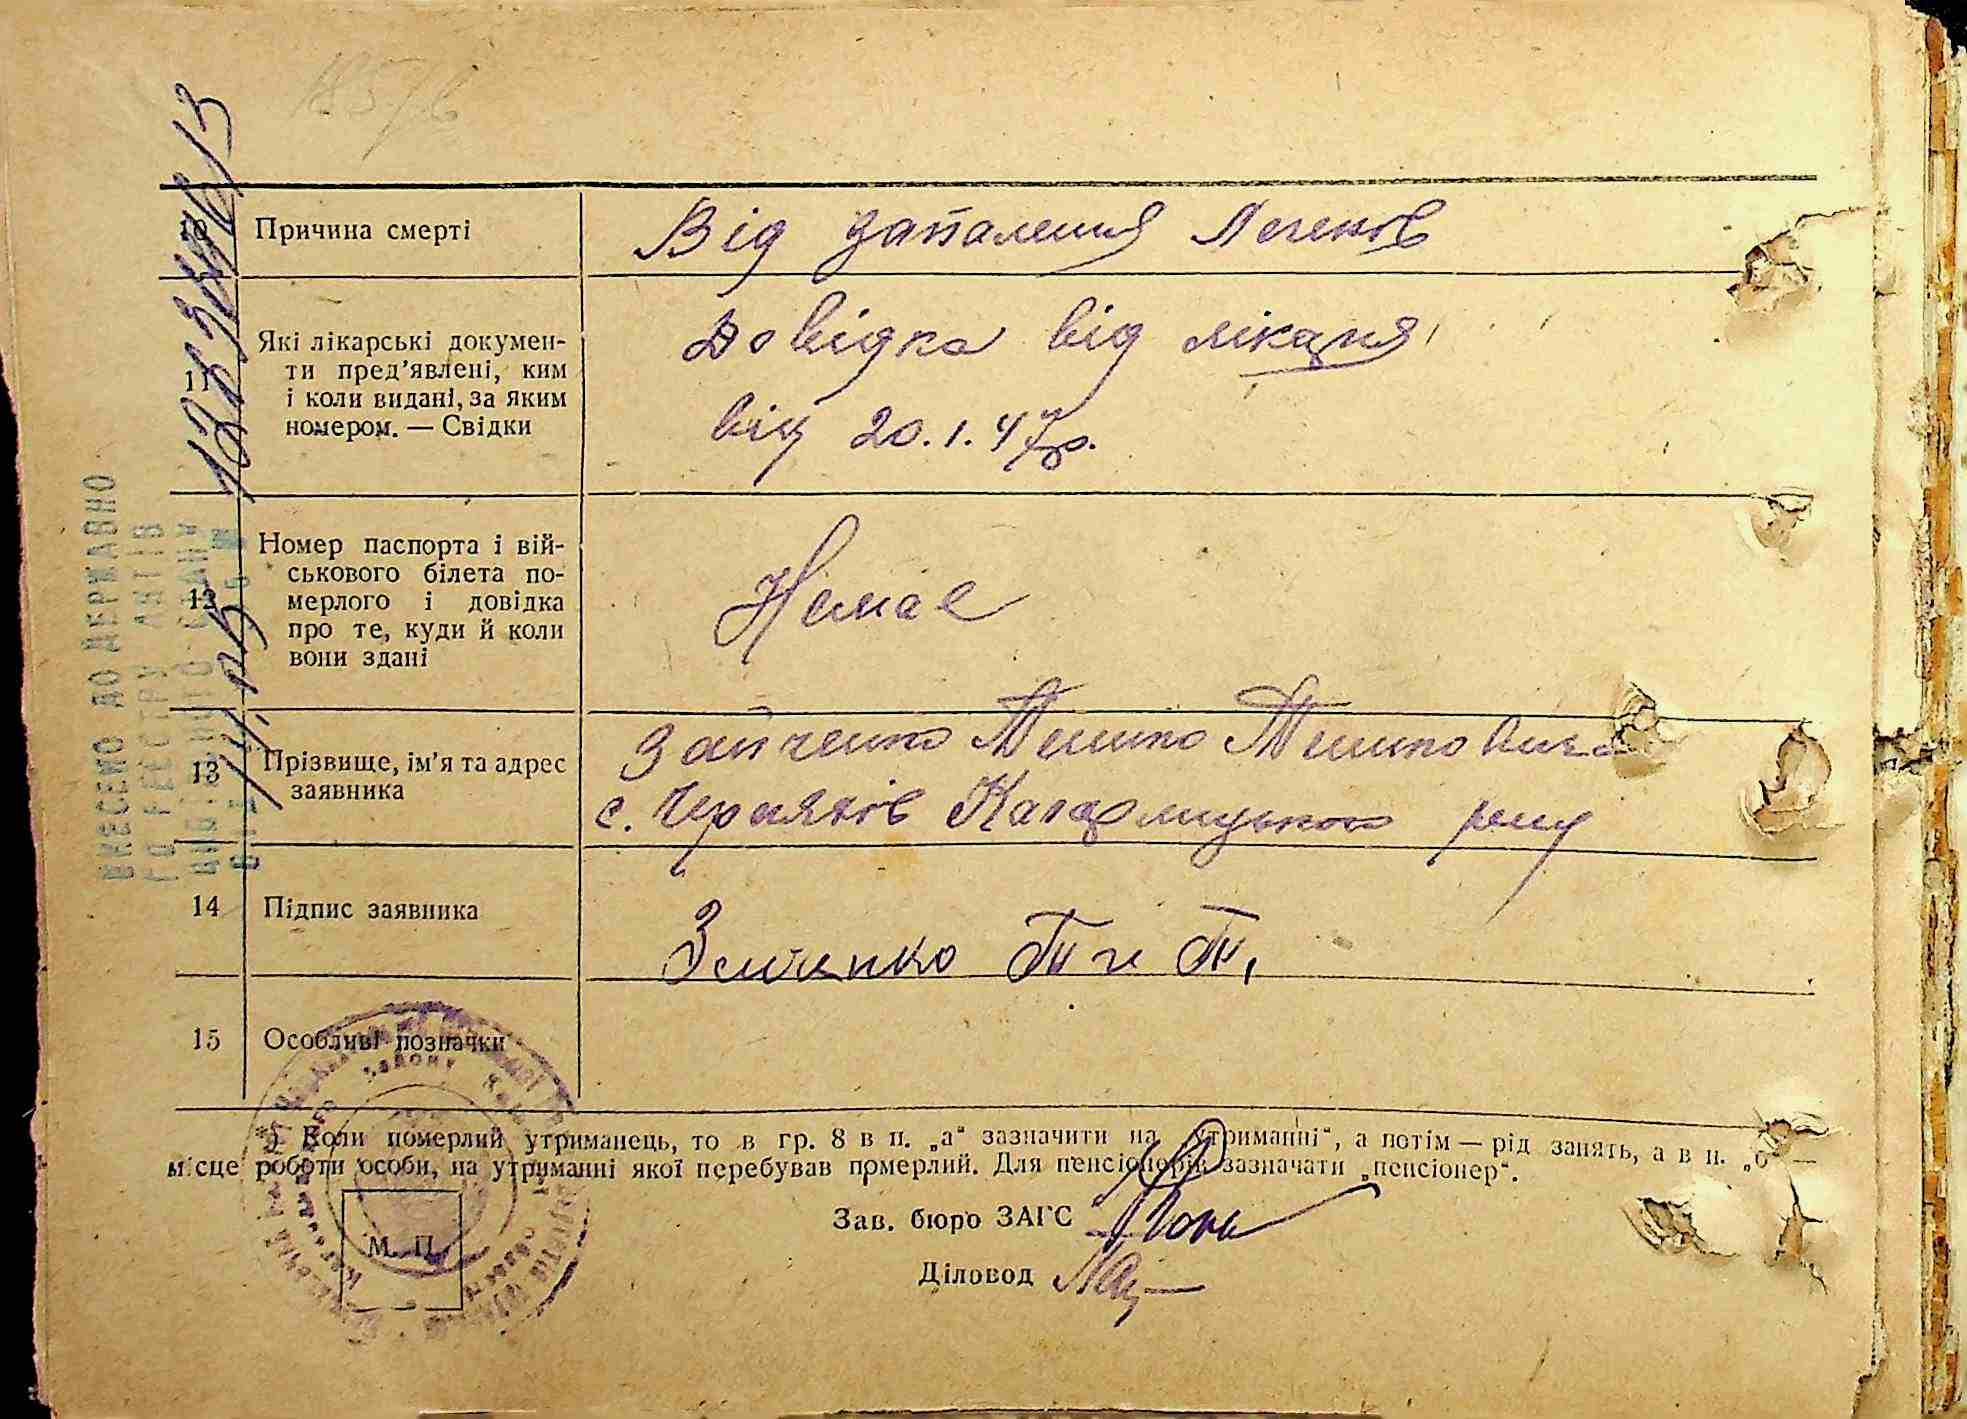 10 Причина смерті
Від запалення легенів
11 Які лікарські докумен-
ти пред'явлені, ким
і коли видані, за яким
номером. — Свідки
Довідка від лікаря
від 20.1.47р.
12 Номер паспорта і вій-
ськового білета по-
мерлого і довідка
про те, куди й коли
вони здані
Немає
13 Прізвище, ім'я та адрес
заявника
Зайченко
с. Черняхів Кагарлицького р-ну
14 Підпис заявника
15 Особливі позначки
*) Коли померлий утриманець, то в гр. 8 в п. „а“ зазначити на „утриманні“, а потім — рід занять, а в п. „б“ —
місце роботи особи, на утриманні якої перебував померлий. Для пенсіонерів зазначати „пенсіонер“.
Зав. бюро ЗАГС
Діловод
М. П.
ВНЕСЕНО ДО ДЕРЖАВНО
ГО РЕЄСТРУ АКТІВ
ЦИВІЛЬНОГО СТАНУ